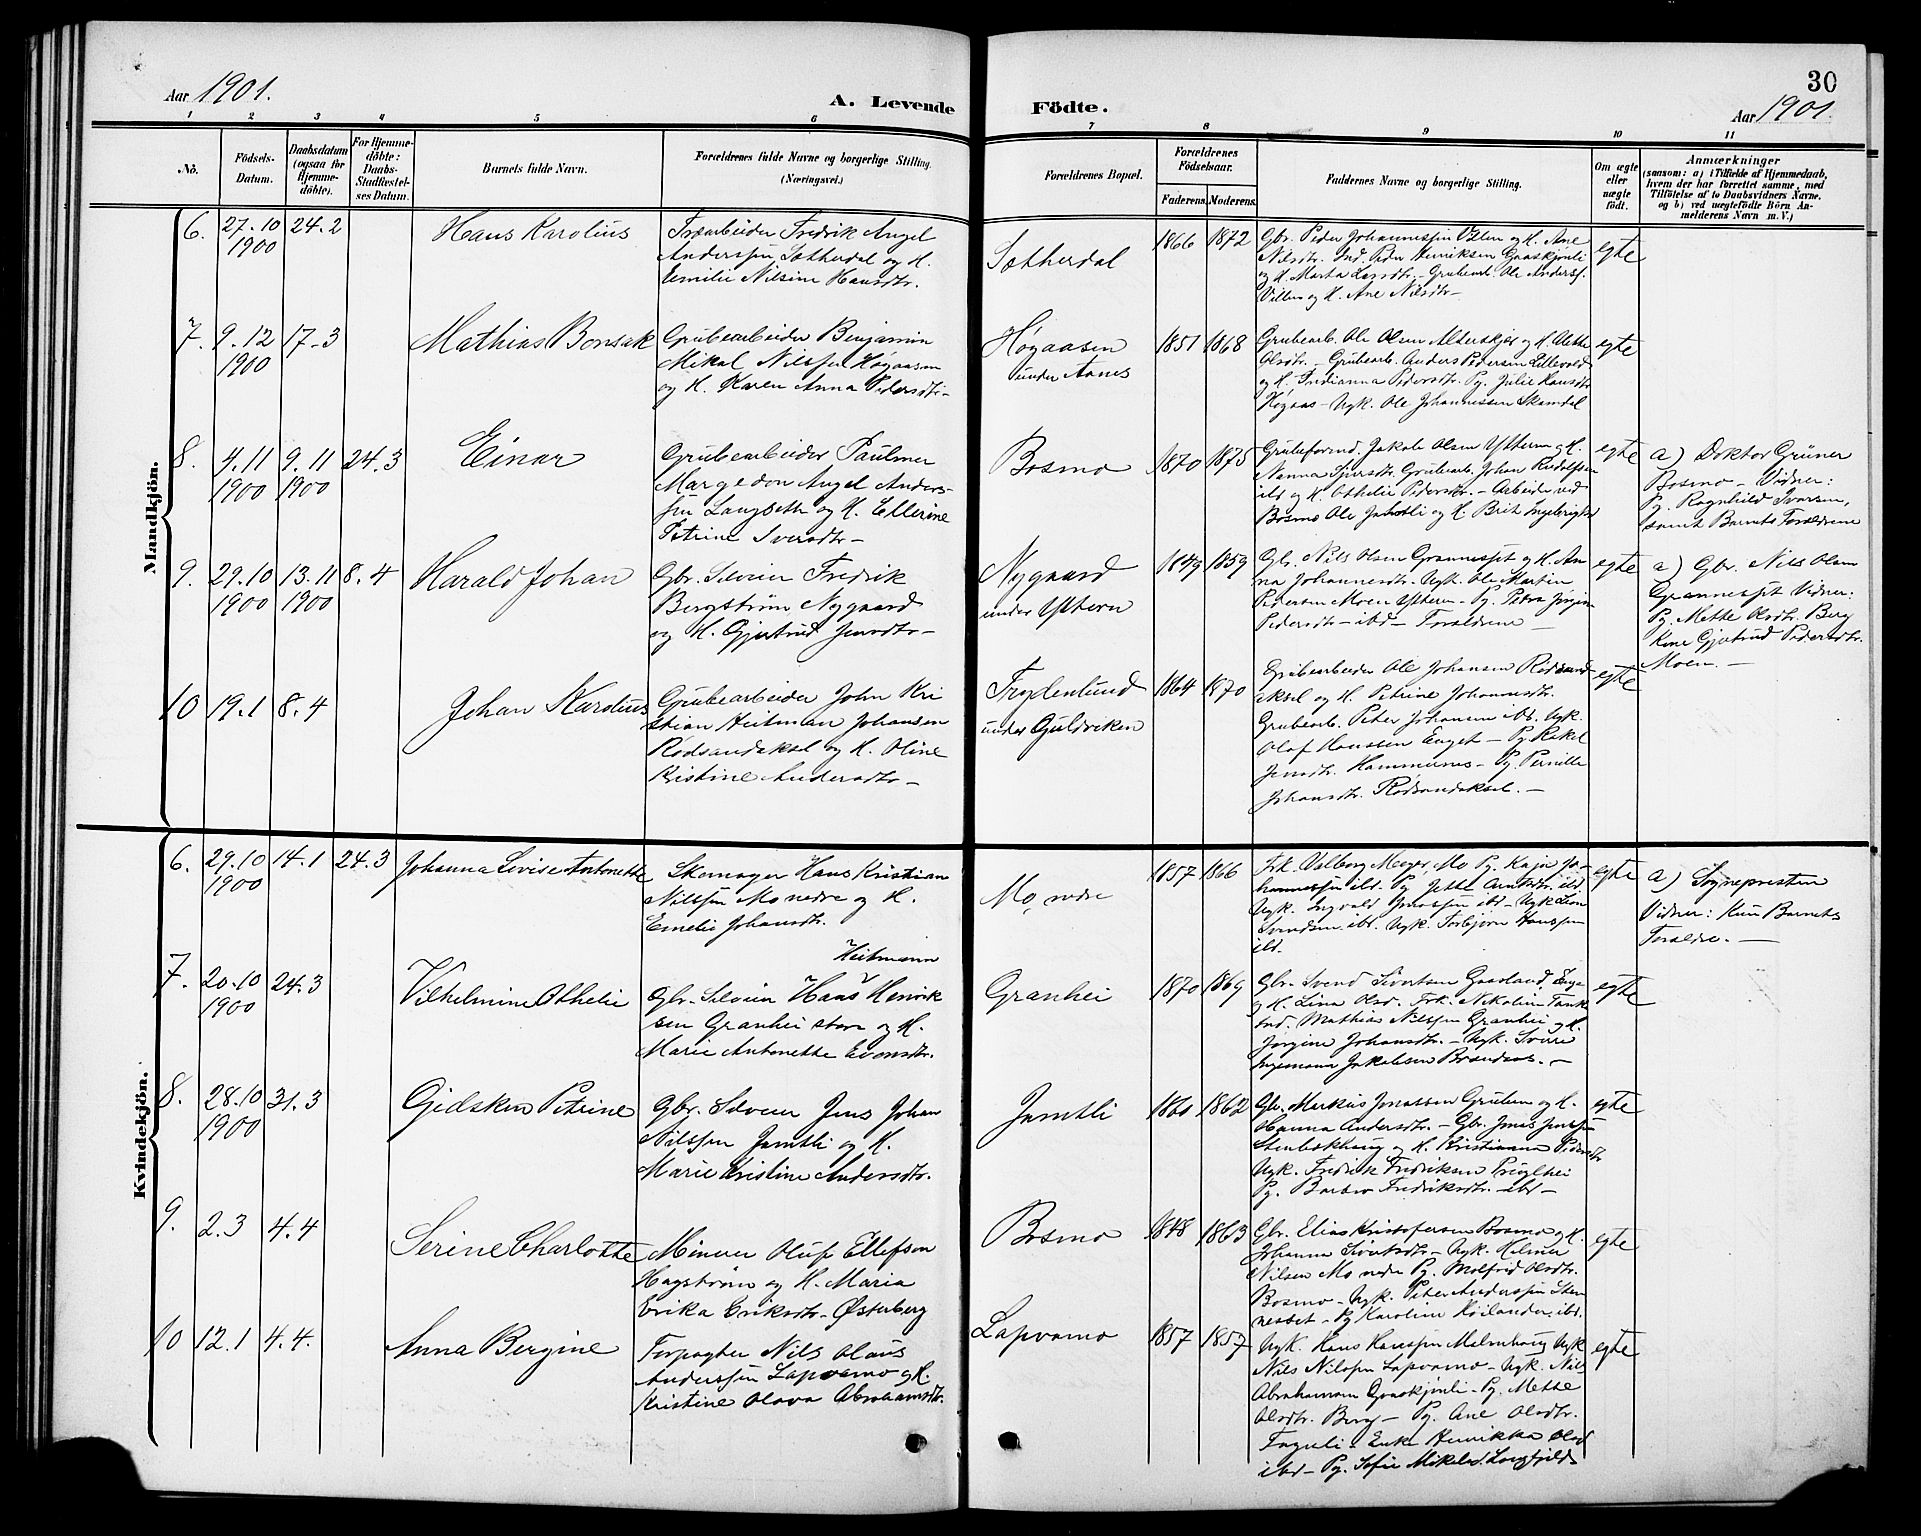 Aar 1901.
A. Levende
Födte.
30
Aar 1901.
1 2 3 4 5 6 7 8 9 10 11
No.
Födsels-
Datum.
Daabsdatum
(ogsaa for
Hjemme-
döbte).
For Hjemme-
döbte:
Daabs-
Stadfæstel-
ses Datum.
Barnets fulde Navn.
Forældrenes fulde Navne og borgerlige Stilling.
(Næringsvei.)
Forældrenes Bopæl.
Forældrenes
Födselsaar.
Faderens. Moderens.
Faddernes Navne og borgerlige Stilling.
Om ægte
eller
uægte
födt.
Anmærkninger
(saasom: a) i Tilfælde af Hjemmedaab,
hvem der har forrettet samme, med
Tilföielse af to Daabsvidners Navne,
og b) ved uægtefödte Börn An-
melderens Navn m. V.)
Mandkjön.
6. 27.10 1900 24.2
Hans Karolius
Træarbeider Fredrik Angel
Anderssen Sætherdal og H.
Emilie Nilsine Hansdtr.
Sætherdal
1866 1872
Gbr. Peder Johannessen Vollen og H. Ane
Nilsdtr. Ind. Peder Henriksen Graaskjønli
og H. Marta Larsdtr. – Grubearb. Ole Anderss.
Villen og H. Ane Nilsdtr –
egte
7. 9.12 1900 17.3
Mathias Bonsak
Grubearbeider Benjamin
Mikal Nilssen Høgaasen
og H. Karen Anna Pedersdtr –
Høgaasen
under Aanes
1851 1868
Grubearb. Ole Olsen Alterskjær og H. Mette
Olsdtr. – Grubearb. Anders Pedersen Lillevold
og H. Indianna Pedersdtr. Pg. Julie Hansdtr
Høgaas – Ugk. Ole Johannessen Skamdal
egte
8. 4.11 1900 9.11 1900 24.3
Einar
Grubearbeider Paulmer
Margedon Angel Anders-
sen Langseth og H. Ellerine
Petrine Iversdtr –
Bosmo
1870 1875
Grubeformd. Jakob Olsen Ytteren og H.
Nanna Sjursdtr. Grubearb. Johan Rudolfsen
ibd og H. Othelie Pedersdtr. – Arbeider ved
Bosmo Ole Jamtli og H. Brit Ingebrigtsd
egte
a) Doktor Grüner
Bosmo – Vidner:
Pg. Ragnhild Ivarsen,
samt Barnets Forældrene
9. 29.10 1900 13.11 1900 8.4
Harald Johan
Gbr. Selveier Fredrik
Bergstrøm Nygaard
og H. Gjertrud Jensdtr –
Nygaard
under Ytteren
1849 1859
Gbr. Nils Olsen Grannesset og H. An-
na Johannesdtr. Ugk. Ole Martin
Pedersen Moen Ytteren – Pg. Petra Jørgine
Pedersdtr – ibd – Forældrene –
egte
a) Gbr. Nils Olsen
Grannesset Vidner:
Pg. Mette Olsdtr. Berg
Kone Gjertrud Pedersdtr.
Moen. –
10 19.1 8.4
Johan Karolius
Grubearbeider John Kri
stian Heitman Johansen
Rødsandaksel og H. Oline
Kristine Andersdtr –
Trollenlund
under Guldviken
1864 1870
Grubearbeider Ole Johansen Rødsand-
aksel og H. Petrine Johannsdtr.
Grubearb. Peter Johansen ibd. Ugk.
Olaf Hanssen Enget – Pg. Rakel
Jensdtr. Hammernes – Pg. Pernille
Johansdtr. Rødsandaksel. –
egte
Kvindekjön.
6. 29.10 1900 14.1 24.3
Johanna Lovise Antonette
Skomager Hans Kristian
Nilssen Mo nedre og H.
Emelie Johansdtr.
Mo, nedre
1857 1866
Frk. Valborg Meyer, Mo Pg. Kaja Jo-
hannessen ibd. Pg Jette Arntsdtr. ibd.
Ugk. Ingvald Jenssen ibd – Ugk
Svendsen ibd. Ugk. Torbjørn Hanssen
ibd.
egte
a) Sognepresten
Vidner: Kun Barnets
Forældre. –
7. 20.10 1900 24.3
Vilhelmine Othelie
Heitmann
Gbr. Selveier Hans Henrik
sen Granhei store og H.
Marie Antonette Evensdtr.
Granhei
1870 1869
Gbr. Svend Sivertsen Gaasland, Enge
og H. Lina Olsd. Frk. Nikoline Tank
Ind. Mathias Nilssen Granhei og H.
Jørgine Johansdtr. – Ugk. Sverre
Ingemann Jakobsen Brændaas. –
egte
8. 28.10 1900 31.3
Gidsken Petrine
Gbr. Selveier Jens Johan
Nilssen Jamtli og H.
Marie Kristine Andersdtr.
Jamtli
1860 1862
Gbr. Markus Jonassen Gruben og H.
Hanna Andersdtr. – Gbr. Jens Jenssen
Stenbekhaug og H. Kristianna Pedersdtr
Ugk. Fredrik Fredriksen
Pg. Barbro Fredriksdtr. ibd –
egte
9. 2.3 4.4
Serine Charlotte
Minerer Oluf Ellefsen
Hagstrøm og H. Maria
Erika Eriksdtr. Østerberg
Bosmo
1848 1863
Gbr. Elias Kristofersen Bosmo og H.
Johanna Sivertsdtr – Ugk. Hilmer
Nilsen Mo nedre Pg. Molfrid Olsdtr.
Bosmo – Ugk. Peter Anderssen Sten-
nesset – Pg Karoline Høilander, ibd.
egte
10 12.1 4.4.
Anna Bergine
Forpagter Nils Olaus
Anderssen Lapvamo og H.
Kristine Olava Abrahamsdtr.
Lapvamo
1857 1857
Ugk. Hans Hanssen Malmhaug Ugk
Nils Nilssen Lapvamo – Ugk. Nils
Abrahamsen Graaskjønli – Pg. Mette
Olsdtr. Berg – Pg. Ane Olsdtr.
Fagerli – Enke Henrikka Olsd
ibd – Pg. Sofie Mikelsd. Langfjeld –
egte